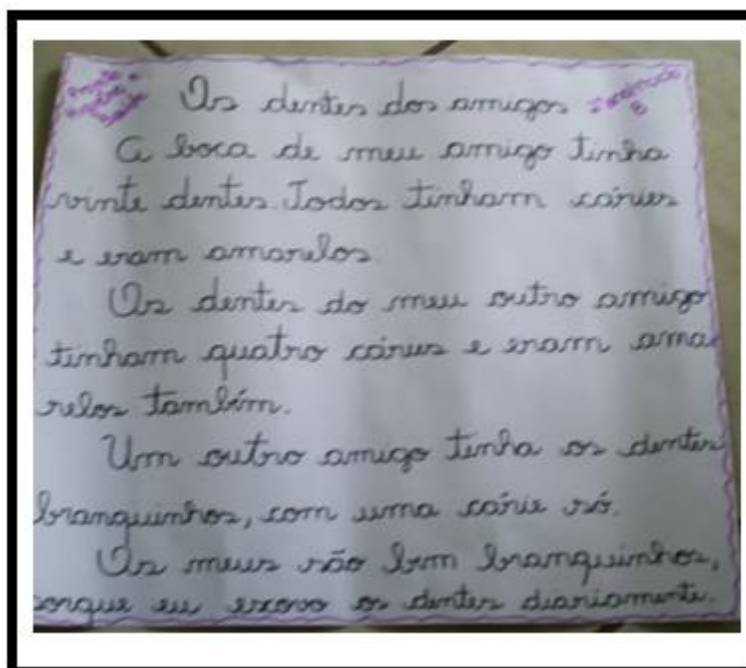 Os dentes dos amigos
A boca de meu amigo tinha
vinte dentes. Todos tinham cáries
e eram amarelos.
Os dentes do meu outro amigo
tinham quatro cáries e eram ama
relos também.
Um outro amigo tinha os dentes
branquinhos, com uma cárie só.
Os meus são bem branquinhos,
porque eu escovo os dentes diariamente.